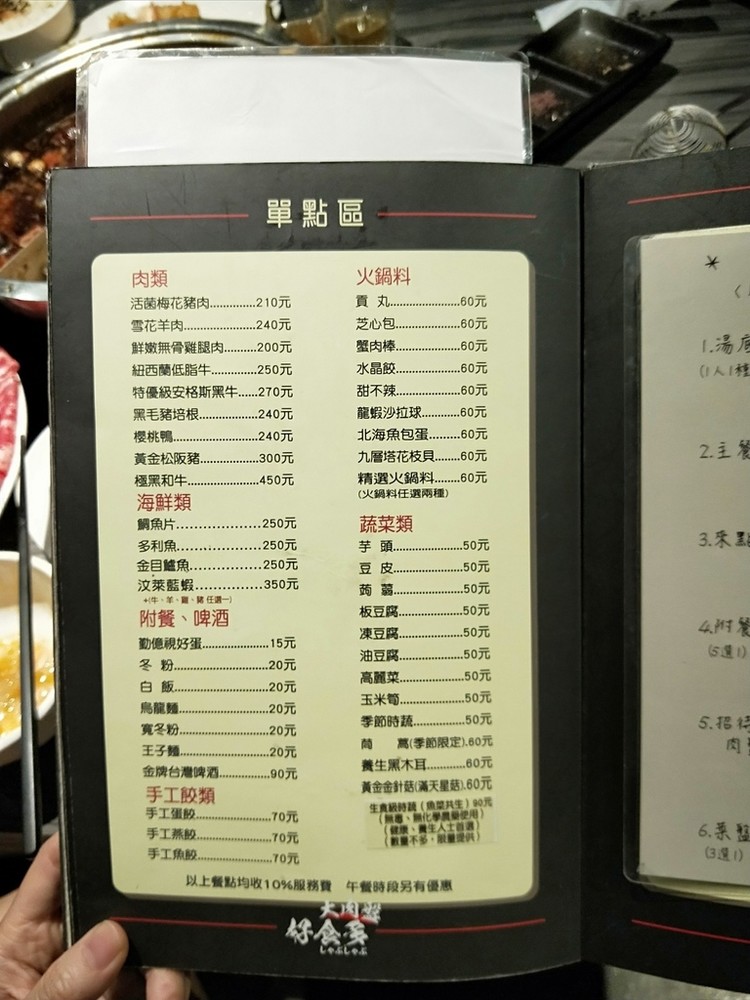 單點區
肉類
活菌梅花豬肉..............210元
雪花羊肉......................240元
鮮嫩無骨雞腿肉..........200元
紐西蘭低脂牛..............250元
特優級安格斯黑牛......270元
黑毛豬培根..................240元
櫻桃鴨..........................240元
黃金松阪豬..................300元
極黑和牛......................450元
海鮮類
鯛魚片........................250元
多利魚........................250元
金目鱸魚....................250元
汶萊藍蝦....................350元
+(牛、羊、雞、豬 任選一)
附餐、啤酒
勤億視好蛋....................15元
冬 粉............................20元
白 飯............................20元
烏龍麵..........................20元
寬冬粉..........................20元
王子麵..........................20元
金牌台灣啤酒................90元
手工餃類
手工蛋餃......................70元
手工燕餃......................70元
手工魚餃......................70元
火鍋料
貢 丸......................60元
芝心包....................60元
蟹肉棒....................60元
水晶餃....................60元
甜不辣....................60元
龍蝦沙拉球............60元
北海魚包蛋............60元
九層塔花枝貝........60元
精選火鍋料............60元
(火鍋料任選兩種)
蔬菜類
芋 頭......................50元
豆 皮......................50元
蒟 蒻......................50元
板豆腐....................50元
凍豆腐....................50元
油豆腐....................50元
高麗菜....................50元
玉米筍....................50元
季節時蔬................50元
茼 蒿(季節限定).60元
養生黑木耳............60元
黃金金針菇(滿天星菇).60元
生食級時蔬(魚菜共生)90元
(無毒、無化學農藥使用)
(健康、養生人士首選)
(數量不多、限量提供)
以上餐點均收10%服務費 午餐時段另有優惠
大肉盤
好食多
しゃぶしゃぶ
*
1.湯底
(1人1種
2.主餐
3.來點
4.附餐
(5選1)
5.招待
肉
6.菜盤
(3選1)